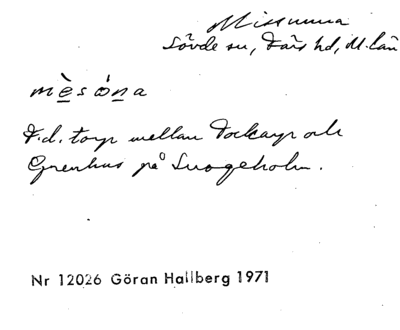 Missunna
Sövde sn, Färs hd, M.län
mèsòna
F.d. torp mellan Tockarp och
Grenhus på Snogeholm.
Nr 12026 Göran Hallberg 1971